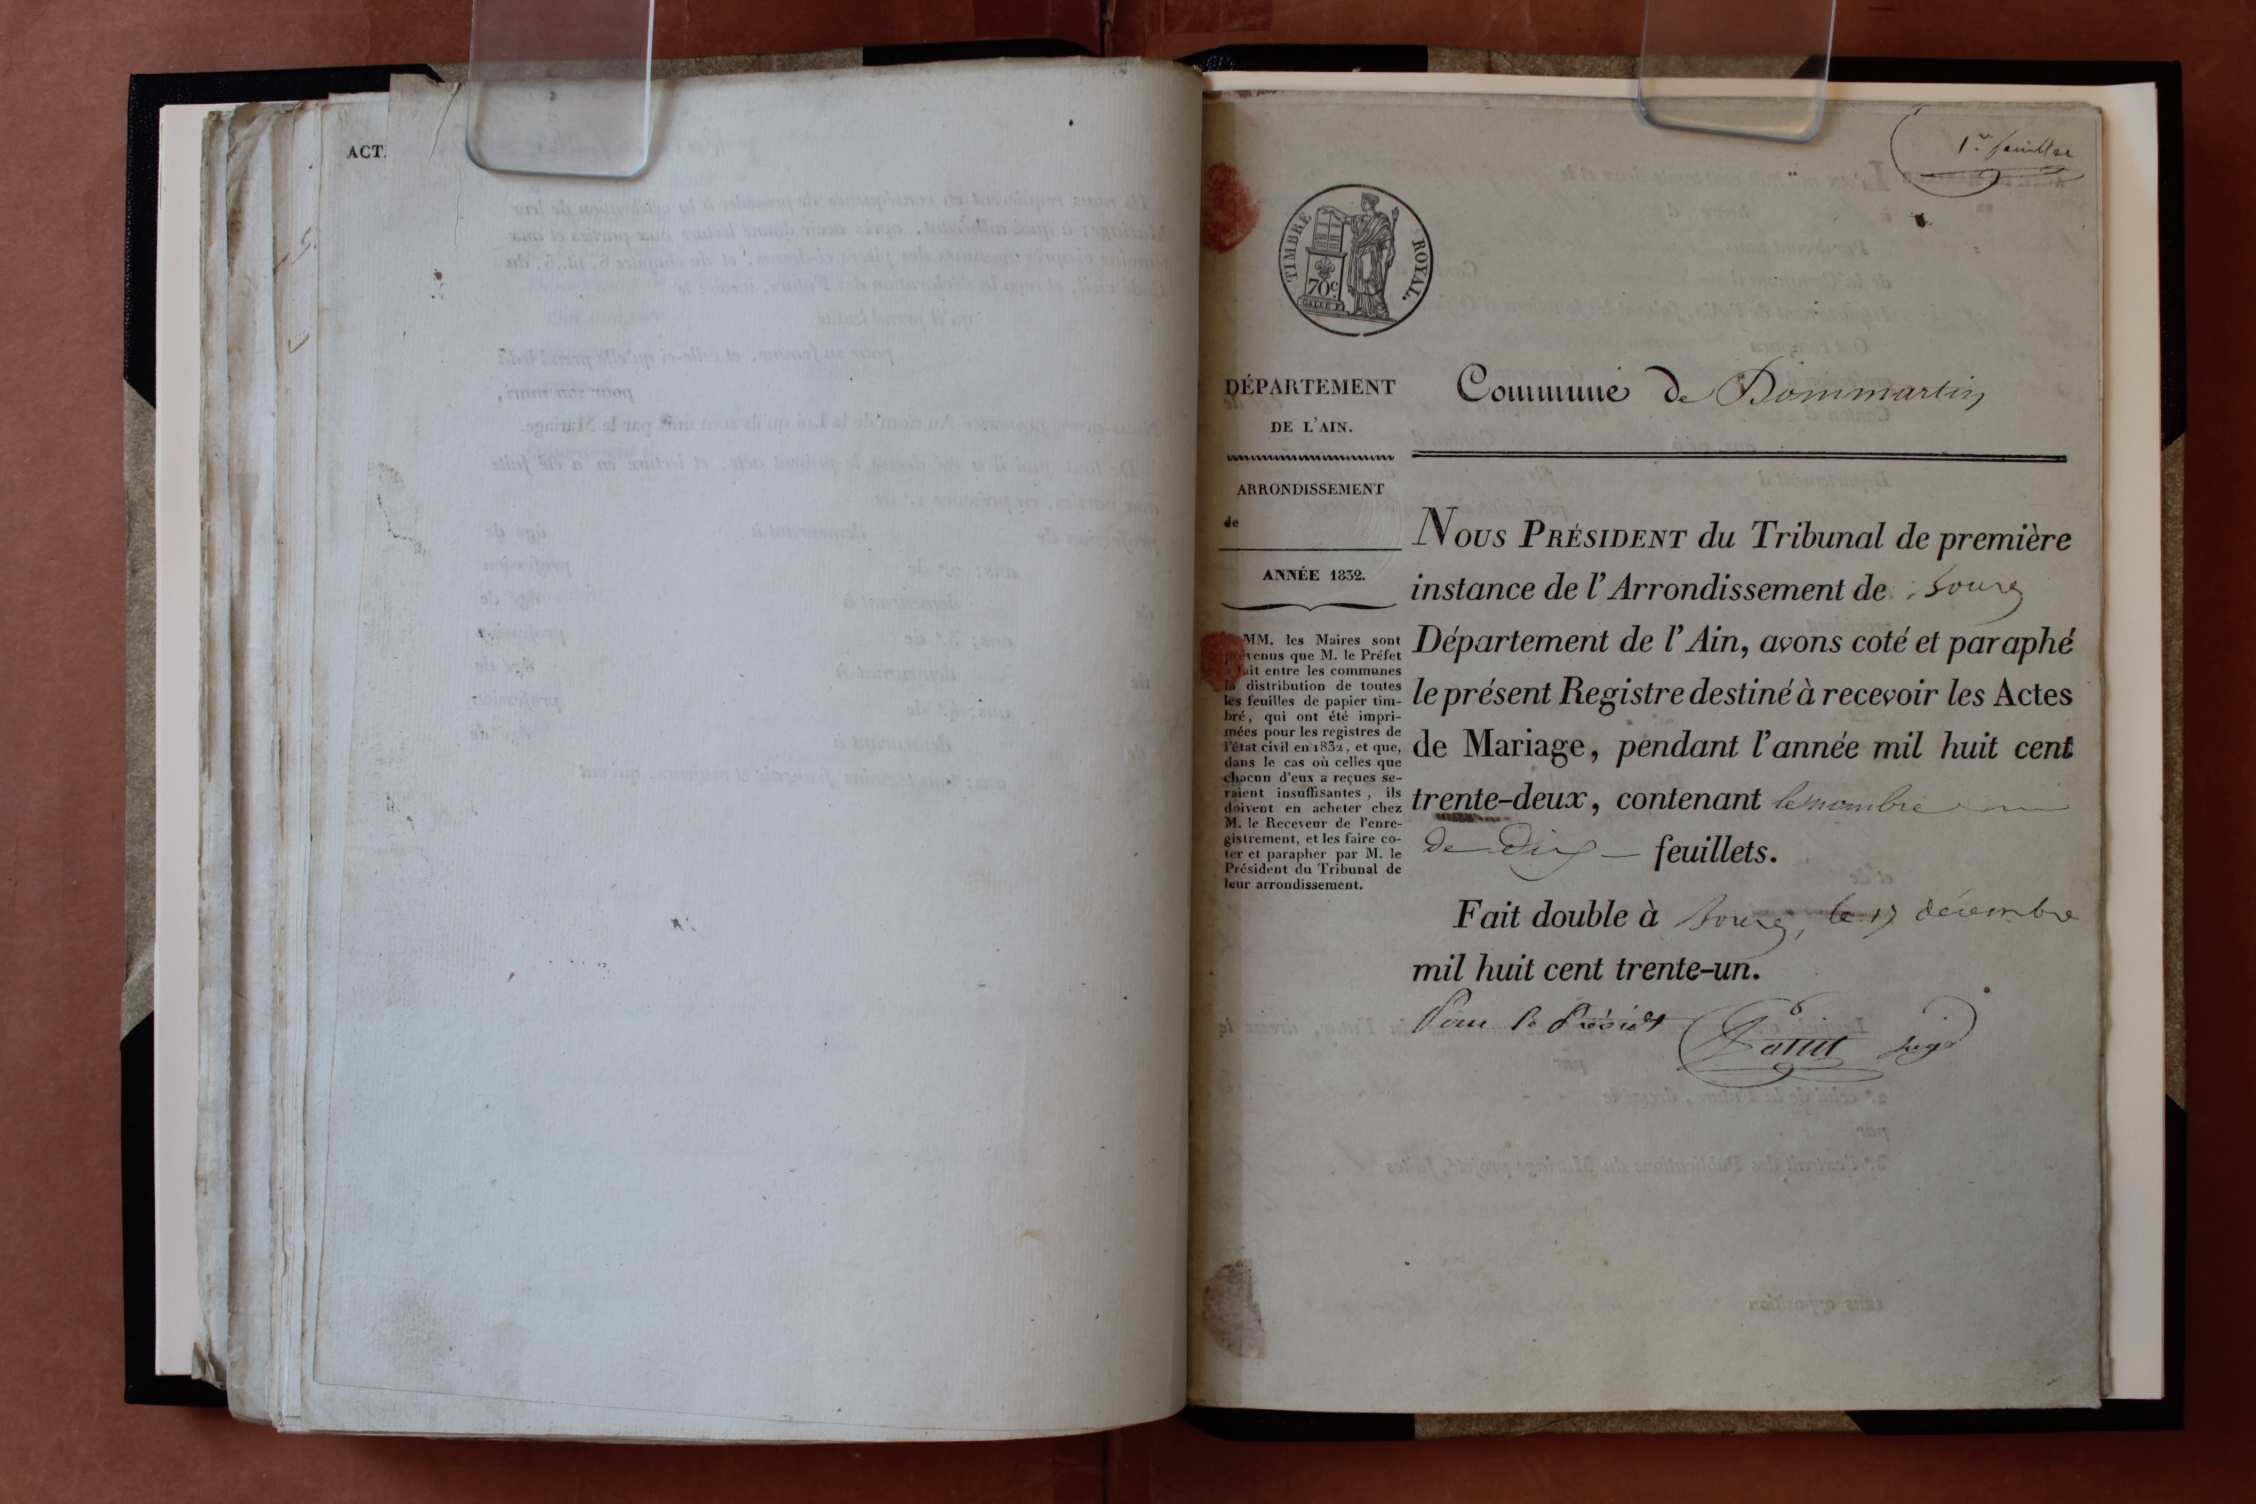 ACT
1.er feuillet
TIMBRE ROYAL.
70c
DÉPARTEMENT
DE L'AIN.
ARRONDISSEMENT
de
ANNÉE 1832.
MM. les Maires sont
prévenus que M. le Préfet
a fait entre les communes
la distribution de toutes
les feuilles de papier tim-
bré, qui ont été impri-
mées pour les registres de
l'état civil en 1832, et que,
dans le cas où celles que
chacun d'eux a reçues se-
raient insuffisantes, ils
doivent en acheter chez
M. le Receveur de l'enre-
gistrement, et les faire co-
ter et parapher par M. le
Président du Tribunal de
leur arrondissement.
Commune de Dommartin
NOUS PRÉSIDENT du Tribunal de première
instance de l'Arrondissement de Bourg
Département de l'Ain, avons coté et paraphé
le présent Registre destiné à recevoir les Actes
de Mariage, pendant l'année mil huit cent
trente-deux, contenant le nombre
de Dix feuillets.
Fait double à Bourg, le 17 décembre
mil huit cent trente-un.
Pour le Présidt
juge